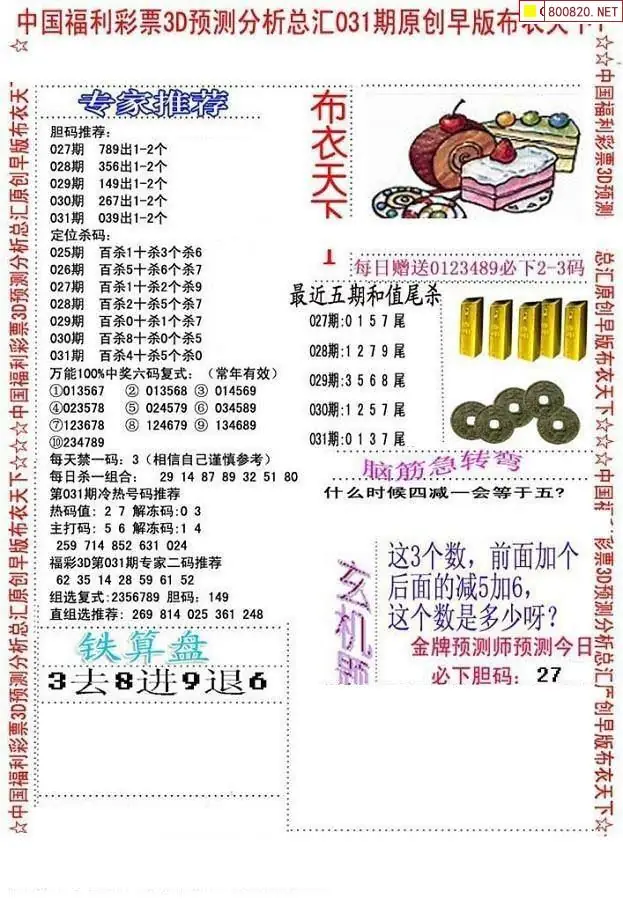 中国福利彩票3D预测分析总汇031期原创早版布衣天下
800820.NET
☆中国福利彩票3D预测分析总汇原创早版布衣天下☆☆☆中国福利彩票3D预测分析总汇原创早版布衣天
专家推荐
胆码推荐:
027期 789出1-2个
028期 356出1-2个
029期 149出1-2个
030期 267出1-2个
031期 039出1-2个
定位杀码:
025期 百杀1十杀3个杀6
026期 百杀5十杀6个杀7
027期 百杀1十杀2个杀9
028期 百杀2十杀5个杀7
029期 百杀0十杀1个杀7
030期 百杀8十杀0个杀5
031期 百杀4十杀5个杀0
万能100%中奖六码复式: (常年有效)
①013567 ② 013568 ③ 014569
④023578 ⑤ 024579 ⑥ 034589
⑦123678 ⑧ 124679 ⑨ 134689
⑩234789
每天禁一码: 3 (相信自己谨慎参考)
每日杀一组合: 29 14 87 89 32 51 80
第031期冷热号码推荐
热码值: 2 7 解冻码:0 3
主打码: 5 6 解冻码:1 4
259 714 852 631 024
福彩3D第031期专家二码推荐
62 35 14 28 59 61 52
组选复式:2356789 胆码: 149
直组选推荐: 269 814 025 361 248
铁算盘
3去8进9退6
布衣天下
每日赠送0123489必下2-3码
最近五期和值尾杀
027期:0 1 5 7 尾
028期:1 2 7 9 尾
029期:3 5 6 8 尾
030期:1 2 5 7 尾
031期:0 1 3 7 尾
脑筋急转弯
什么时候四减一会等于五?
玄机题
这3个数, 前面加个
后面的减5加6,
这个数是多少呀?
金牌预测师预测今日
必下胆码: 27
☆☆中国福利彩票3D预测
总汇原创早版布衣天下☆☆☆中国福
彩票3D预测分析总汇
创早版布衣天下☆